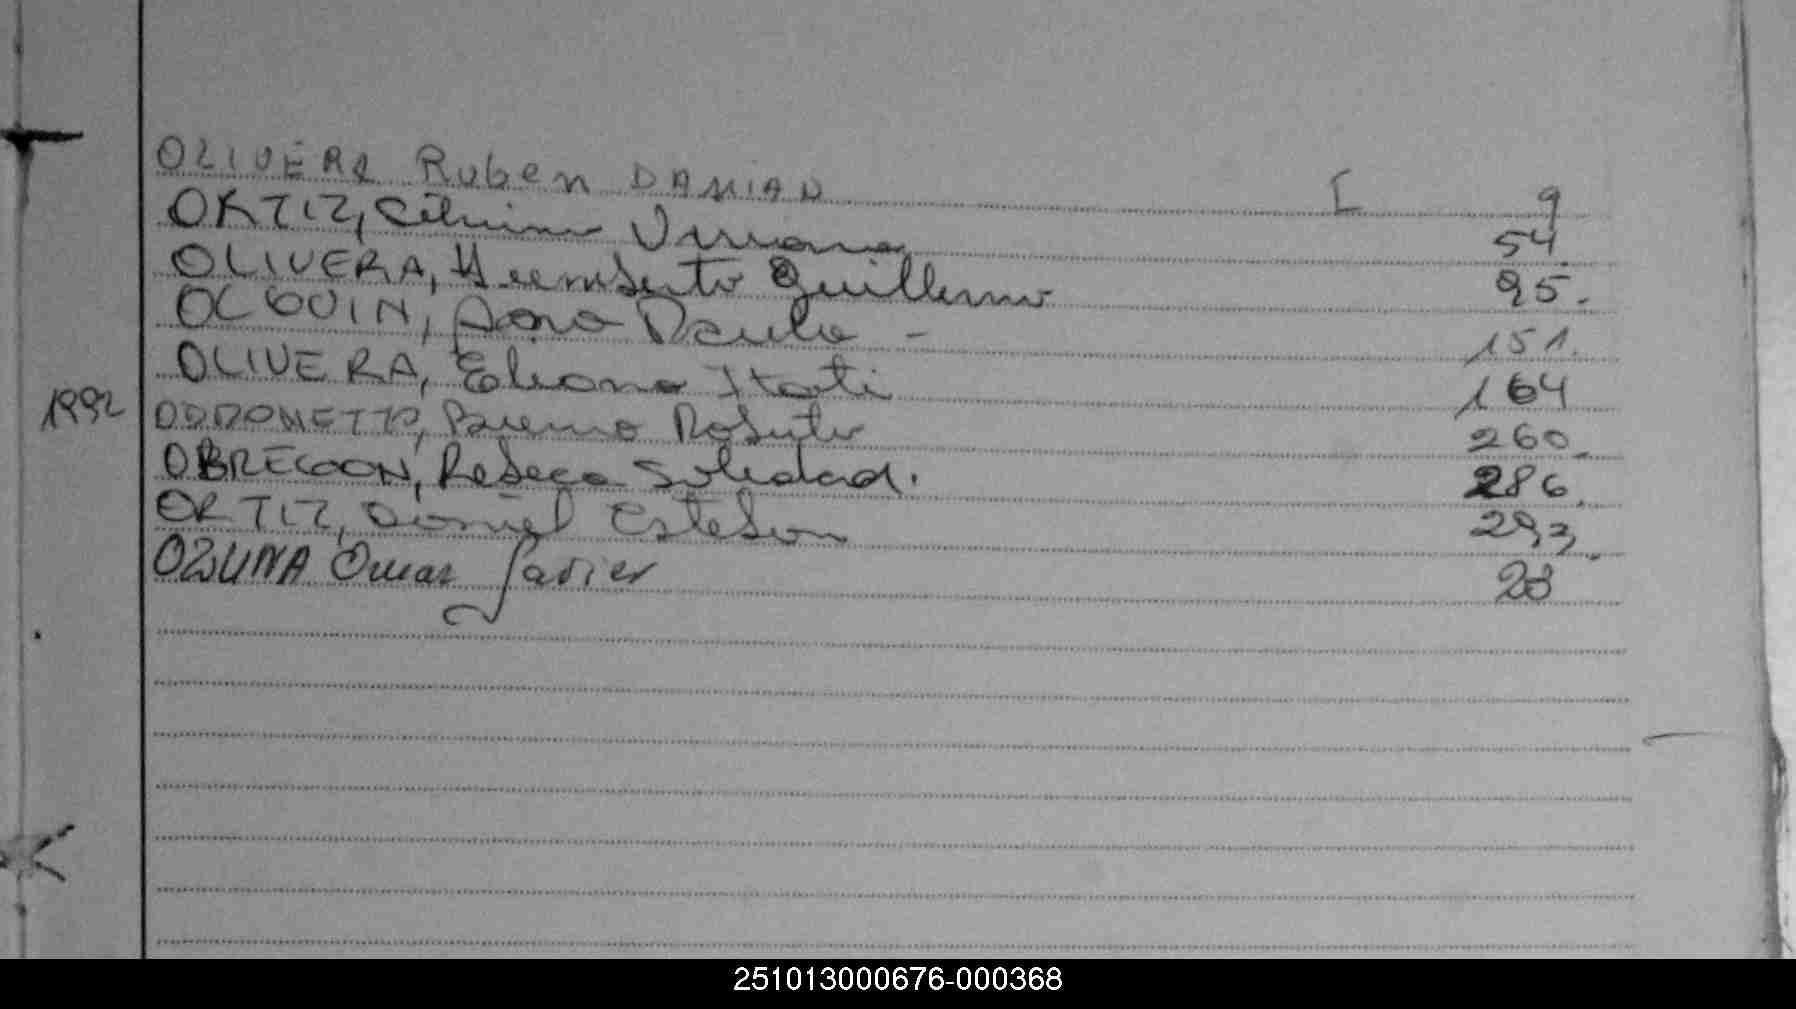 OLIVERA Ruben DAMIAN I 9
ORTIZ, Viviana 54
OLIVERA, Humberto Guillermo 95.
OLGUIN, Paula - 151.
OLIVERA, Eliana Itati 164
1992 ODDONETTO, Bruno Roberto 260.
OBREGON, Rebeca Soledad. 286.
ORTIZ, Daniel Esteban 293.
OZUNA Omar Javier 28
251013000676-000368